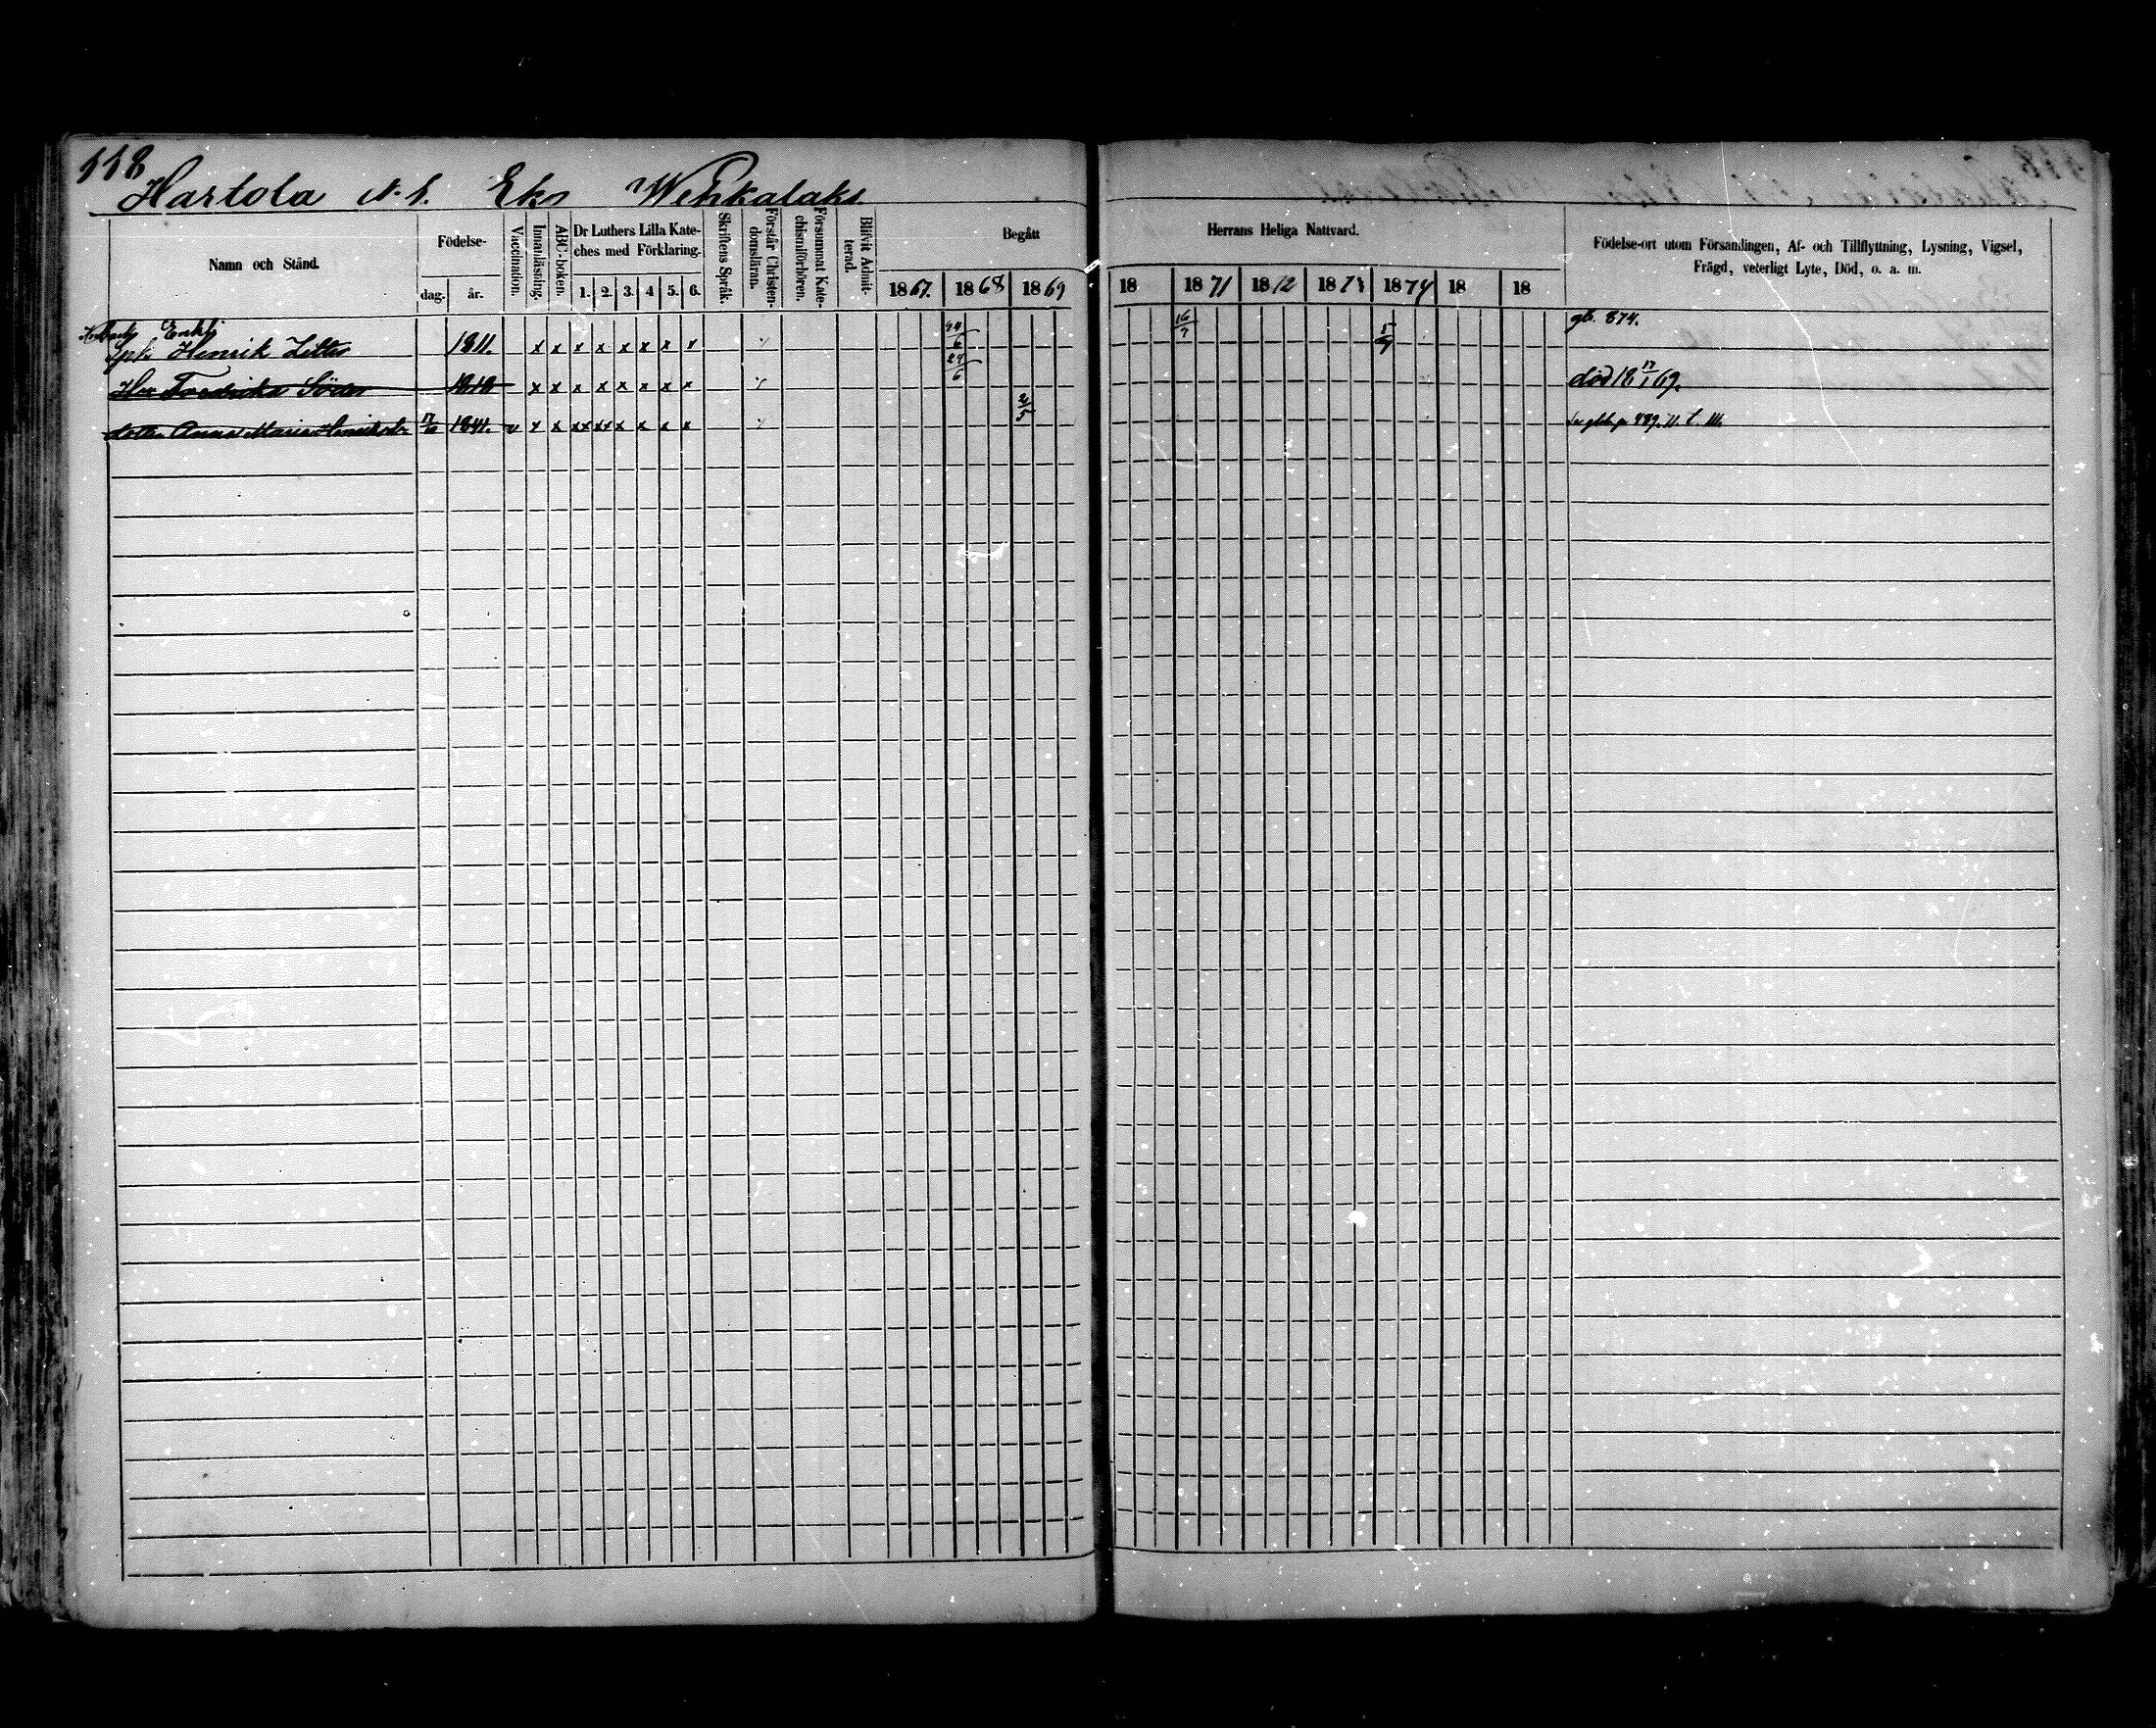 118
Hartola N. 1. Eks Wehkalaks
Namn och Stånd.
Födelse-
dag.
år.
Vaccination.
Innanläsning.
ABC-boken.
Dr Luthers Lilla Kate-
ches med Förklaring.
1. 2. 3. 4 5. 6.
Skriftens Språk.
Förstår Christen-
domsläran.
Försummat Kate-
chismiförhören.
Blifvit Admit-
terad.
Begått
1867. 1868 1869
Herrans Heliga Nattvard.
18 1871 1872 1873 1874 18 18
Födelse-ort utom Församlingen, Af- och Tillflyttning, Lysning, Vigsel,
Frägd, veterligt Lyte, Död, o. a. m.
Enkl:
Henrik 1811. x x x x x x x x 24/6 16/7 5/7 gb. 874.
Hu Fredrika 1818 x x x x x x x x 24/6 död 18 17/1 69.
dotter Anna Maria 1841. v x x xx xx x x x x 2/5